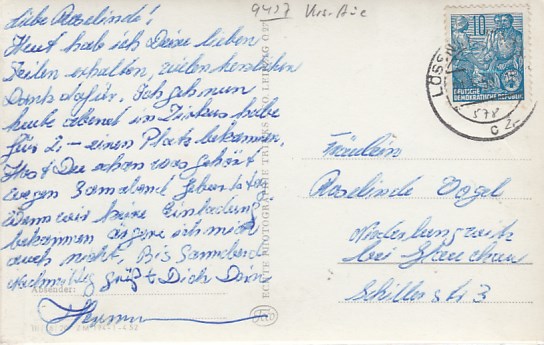 9417 Krs. Aue
Liebe Roselinde!
Heut hab ich Deine lieben
Zeilen erhalten, vielen herzlichen
Dank dafür. Ich geh nun
heute abend in Zirkus habe
für 2,- einen Platz bekommen.
Hast Du schon was gehört
wegen Sonnabend Geburtstag
Wenn wir keine Einladung
bekommen ärgere ich mich
auch nicht. Bis Sonnabend
Nachmittag grüßt Dich Deine
Absender:
ECHTE PHOTOGRAPHIE
10
DEUTSCHE
DEMOKRATISCHE REPUBLIK
LÖSSN
Fräulein
Roselinde Vogel
Niederlungwitz
bei Glauchau
Schillerstr 3